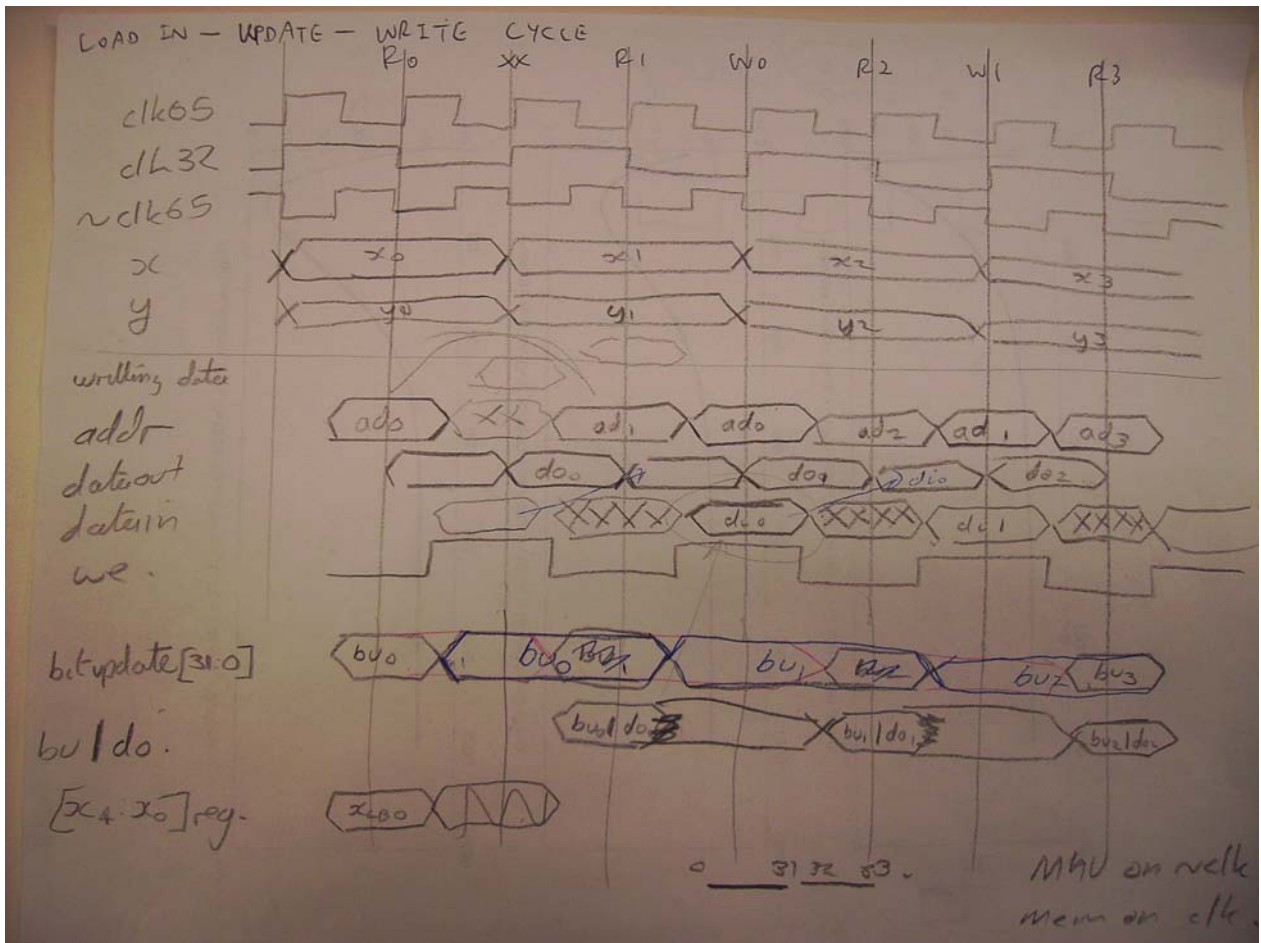 LOAD IN - UPDATE - WRITE CYCLE
R0 XX R1 W0 R2 W1 R3
clk65
clk32
~clk65
x x0 x1 x2 x3
y y0 y1 y2 y3
writting data
addr ad0 XX ad1 ad0 ad2 ad1 ad3
dataout do0 do1 di0 do2
datain XXXX di0 XXXX di1 XXXX
we.
bitupdate[31:0] bu0 bu0 bu1 bu2 bu3
bu/do. bu0/do0 bu1/do1 bu2/do2
[x4:x0] reg.
0 31 32 63.
on ~clk
mem on clk.